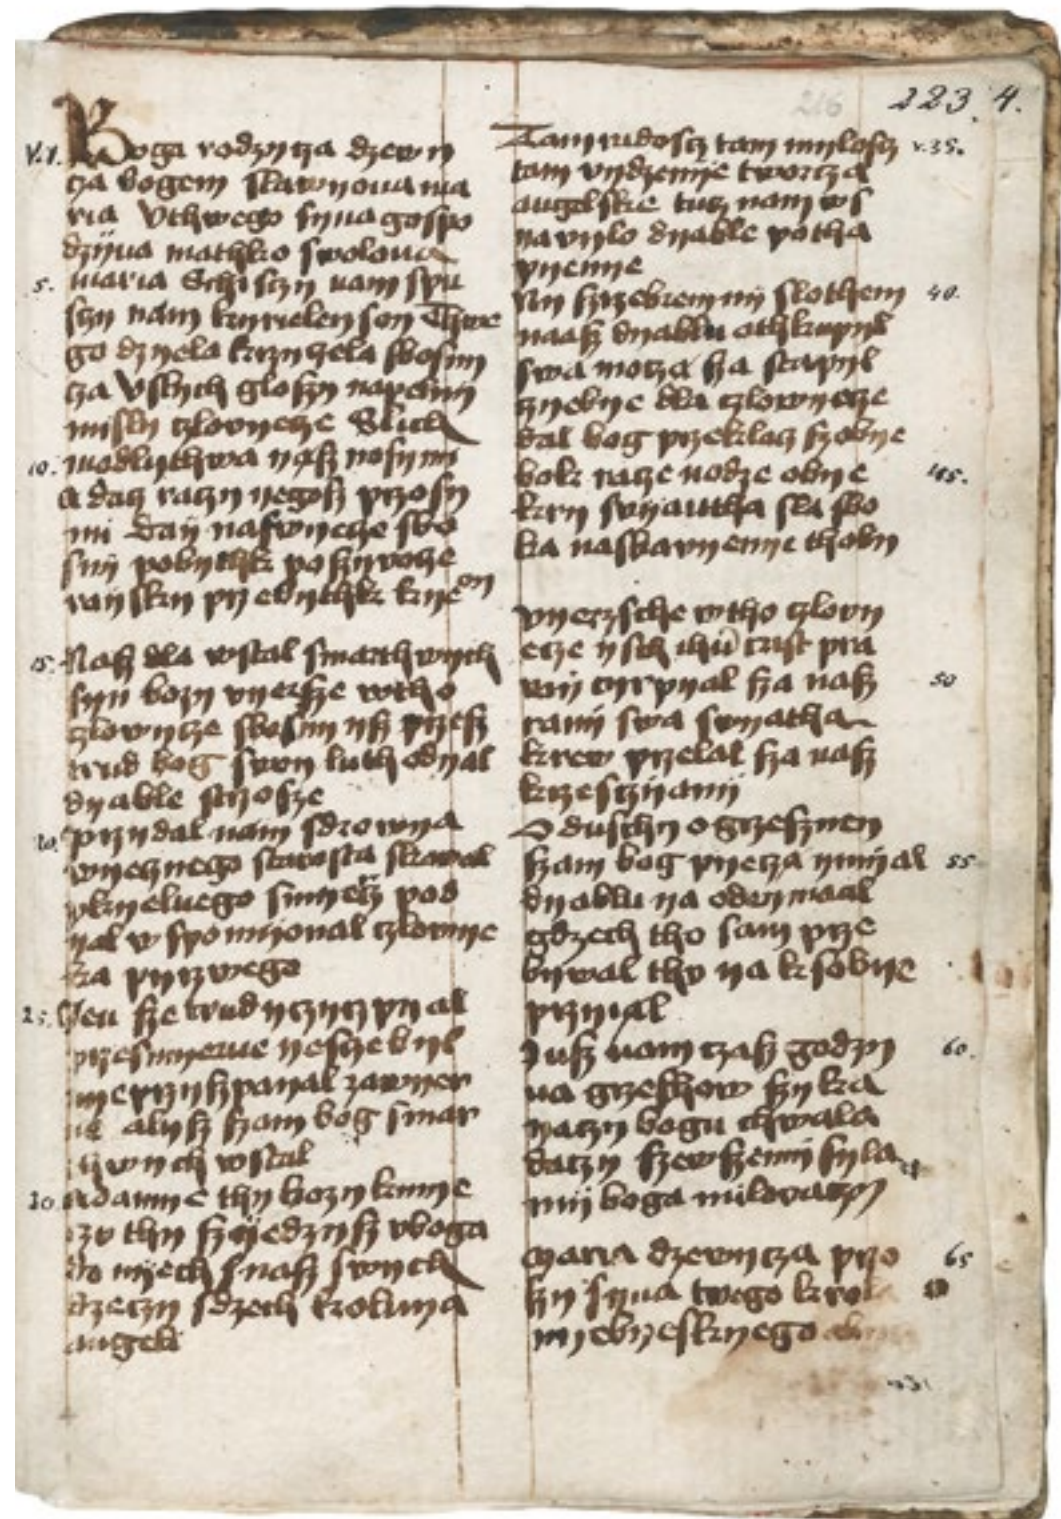 216
223. 4.
V.1. Boga rodzycza dzewy
cza bogem slawyona ma
ria Vthwego syna gospo
dzyna mathko swolona
5. maria Schisczy nam spu
sczy nam kyrieleyson Thwe
go dzyela krzyczela sbosny
cza Vslysch glosy napelny
misly czlowyecze Slisch
10. modlythwa nasz nosymi
a dacz raczy yegosz prosy
mi day naswyecze sbo
sny pobyth posywocze
rayski przebyth kyrieon
15. Nasz dla wstal smarthwych
syn bozy vyersze wtho
czlowycze sbosny ysz przesz
trud bog swoy luth odyal
dyable strosze
20. przydal nam sdrowya
wyecznego starosta skowal
pkyelnego smyercz pod
yal wspomyonal czlowye
ka pyrzwego
25. Jen sze trudy czyrzpyal
przesmyerne yescze byl
nye przyspyal zawyer
ne alysz szam bog smar
thwych wstal
30. adamye thy bozy kmye
czy thy szyedzysz vboga
do wyech snasz swych
dzeczy sdzech krolwya
angeli
Tam radoscz tam myloscz v.35.
tam vydzenye tworcza
angelske tucz nam ws
navylo dyable potha
pyenye
Ny szrzebrem ny slothem 40.
nasz dyablu othkupyl
swa mocza sza stapyl
cyebye dla czlowyecze
dal bog przeklacz szobye
bok racze nodze obye 45.
kry swyantha sla sbo
ka nasbavyenye thoby
vyerzsche wtho czlowy
ecze ysch ihu crist pra
wy cyrpyal sza nasz 50
rany swa swyatha
krew przelal sza nasz
krzesczyany
O duschy o grzeszney
szam bog pyecza ymyal 55
dyablu ya odeymaal
gdzech tho sam prze
bywal thv ya ksobye
przyyal
Jusz nam czasz godzy 60.
na grzeschow szy ka
yaczy bogu chwala
daczy szewszemy syla
my boga milowaczy
Maria dzewycza pro 65
szy syna twego krola
nyebyeskyego